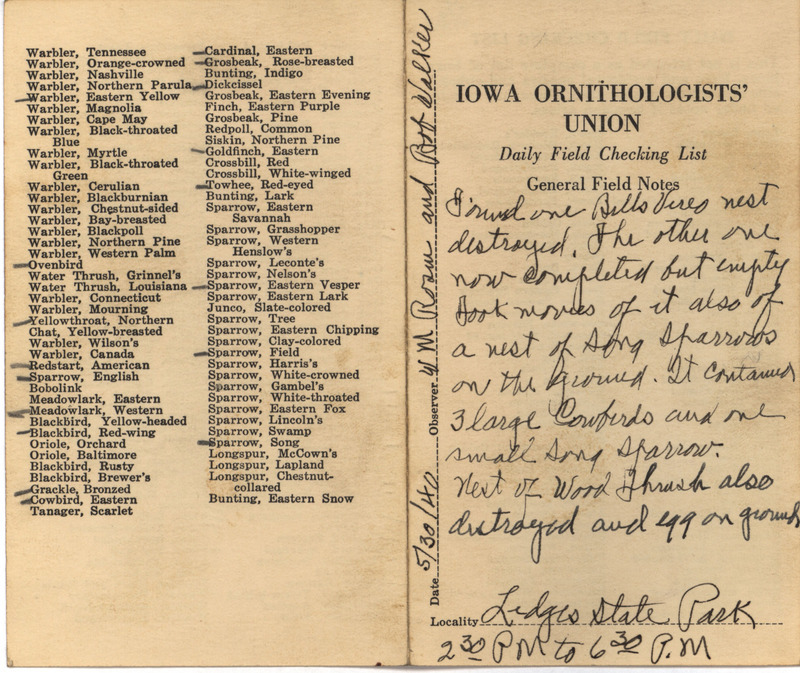 Warbler, Tennessee
Warbler, Orange-crowned
Warbler, Nashville
Warbler, Northern Parula
Warbler, Eastern Yellow
Warbler, Magnolia
Warbler, Cape May
Warbler, Black-throated
Blue
Warbler, Myrtle
Warbler, Black-throated
Green
Warbler, Cerulian
Warbler, Blackburnian
Warbler, Chestnut-sided
Warbler, Bay-breasted
Warbler, Blackpoll
Warbler, Northern Pine
Warbler, Western Palm
Ovenbird
Water Thrush, Grinnel's
Water Thrush, Louisiana
Warbler, Connecticut
Warbler, Mourning
Yellowthroat, Northern
Chat, Yellow-breasted
Warbler, Wilson's
Warbler, Canada
Redstart, American
Sparrow, English
Bobolink
Meadowlark, Eastern
Meadowlark, Western
Blackbird, Yellow-headed
Blackbird, Red-wing
Oriole, Orchard
Oriole, Baltimore
Blackbird, Rusty
Blackbird, Brewer's
Grackle, Bronzed
Cowbird, Eastern
Tanager, Scarlet
Cardinal, Eastern
Grosbeak, Rose-breasted
Bunting, Indigo
Dickcissel
Grosbeak, Eastern Evening
Finch, Eastern Purple
Grosbeak, Pine
Redpoll, Common
Siskin, Northern Pine
Goldfinch, Eastern
Crossbill, Red
Crossbill, White-winged
Towhee, Red-eyed
Bunting, Lark
Sparrow, Eastern
Savannah
Sparrow, Grasshopper
Sparrow, Western
Henslow's
Sparrow, Leconte's
Sparrow, Nelson's
Sparrow, Eastern Vesper
Sparrow, Eastern Lark
Junco, Slate-colored
Sparrow, Tree
Sparrow, Eastern Chipping
Sparrow, Clay-colored
Sparrow, Field
Sparrow, Harris's
Sparrow, White-crowned
Sparrow, Gambel's
Sparrow, White-throated
Sparrow, Eastern Fox
Sparrow, Lincoln's
Sparrow, Swamp
Sparrow, Song
Longspur, McCown's
Longspur, Lapland
Longspur, Chestnut-
collared
Bunting, Eastern Snow
Date 5/30/40 Observer M Rosen and Bob Walker
IOWA ORNITHOLOGISTS'
UNION
Daily Field Checking List
General Field Notes
Found one Bells Vireo nest
destroyed. The other one
now completed but empty
Took movies of it also of
a nest of Song Sparrows
on the ground. It contained
3 large Cowbirds and one
small Song Sparrow.
Nest of Wood Thrush also
distroyed and egg on ground
Locality Ledges State Park
2 30 PM to 6 30 P.M